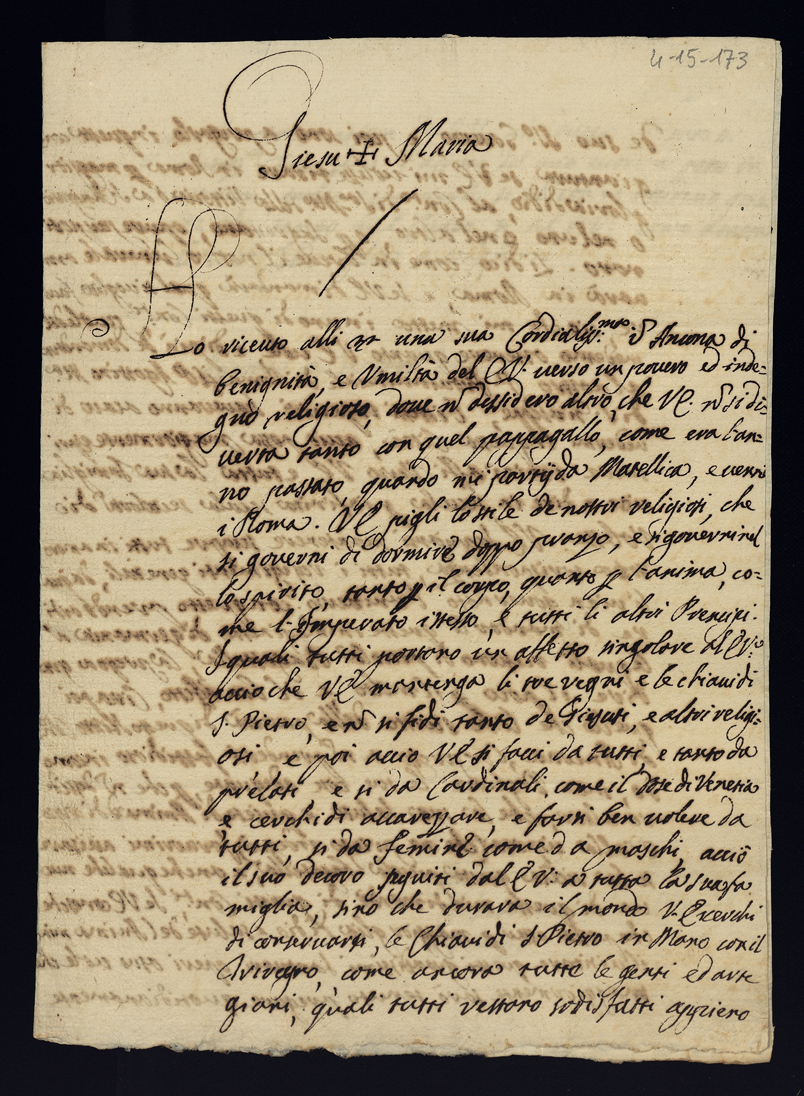 4-15-173
Giesu + Maria
Ho riceuto alli una sua Cordialiss.ma i Ancona di
benignità, e Vmiltà del verso un povero ed inde=
gno religioso, dove nō dessidero altro, che VE. nō si di=
verta tanto con quel pappagallo, come era l'an=
no passato, quando mi partij da Matellica, e venni
i Roma. VE pigli lo stile de nostri religiosi, che
si governi di dormire doppo pranzo, e si governi nel
lo spirito, tanto p il corpo, quanto p l'anima, co=
me l'Imperato istesso, e tutti li altri Prencipi.
I quali tutti portono un affetto singolare al
accio che VE mantenga li sue regni e le chiaui di
S. Pietro, e nō si fidi tanto de Giesuti, e altri religi=
osi e poi accio VE si facci da tutti, e tanto da
prelati e si da Cardinali, come il Dose di Venetia
e cerchi di accarezzare, e farsi ben volere da
tutti, si da femine come da maschi, acciò
il suo decoro seguiti dal a tutta la sua fa
miglia, sino che durara il mondo V.E cerchi
di conseruarsi, le Chiaui di S Pietro in Mano con il
come ancora tutte le genti ed arte
giani, quali tutti restoro sodisfatti appieno